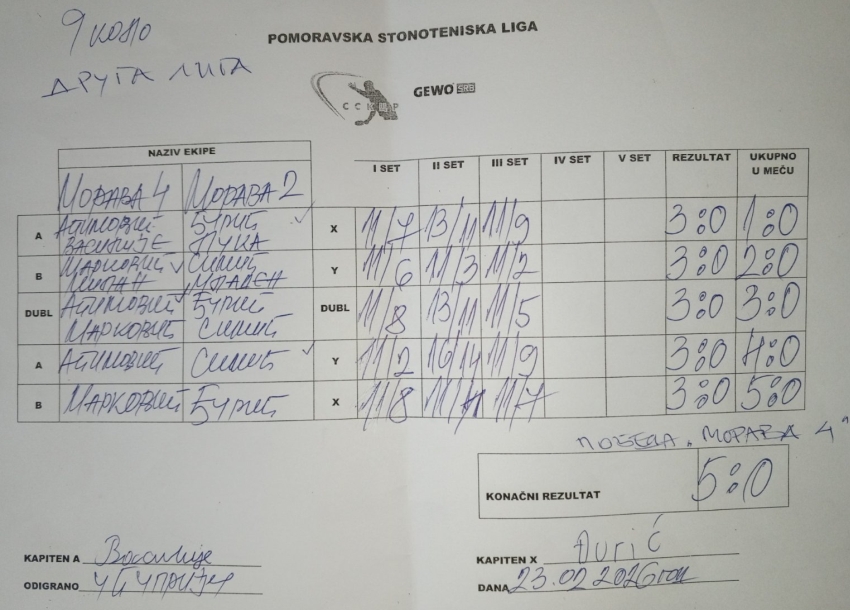 9 КОЛО
ДРУГА ЛИГА
POMORAVSKA STONOTENISKA LIGA
GEWO SRB
NAZIV EKIPE I SET II SET III SET IV SET V SET REZULTAT UKUPNO U MEČU
МОРАВА 4 МОРАВА 2
A АЋИМОВИЋ ВАСИЛИЈЕ ЂУРИЋ ЛУКА X 11/7 13/11 11/9 3:0 1:0
B МАРКОВИЋ МИЛАН СИМИЋ МЛАДЕН Y 11/6 11/3 11/2 3:0 2:0
DUBL АЋИМОВИЋ МАРКОВИЋ ЂУРИЋ СИМИЋ DUBL 11/8 13/11 11/5 3:0 3:0
A АЋИМОВИЋ СИМИЋ Y 11/2 16/14 11/9 3:0 4:0
B МАРКОВИЋ ЂУРИЋ X 11/8 11/7 3:0 5:0
ПОБЕДА МОРАВА 4"
KONAČNI REZULTAT 5:0
KAPITEN A Василије
ODIGRANO У ЋУПРИЈИ
KAPITEN X Đurić
DANA 23.02 2026 год